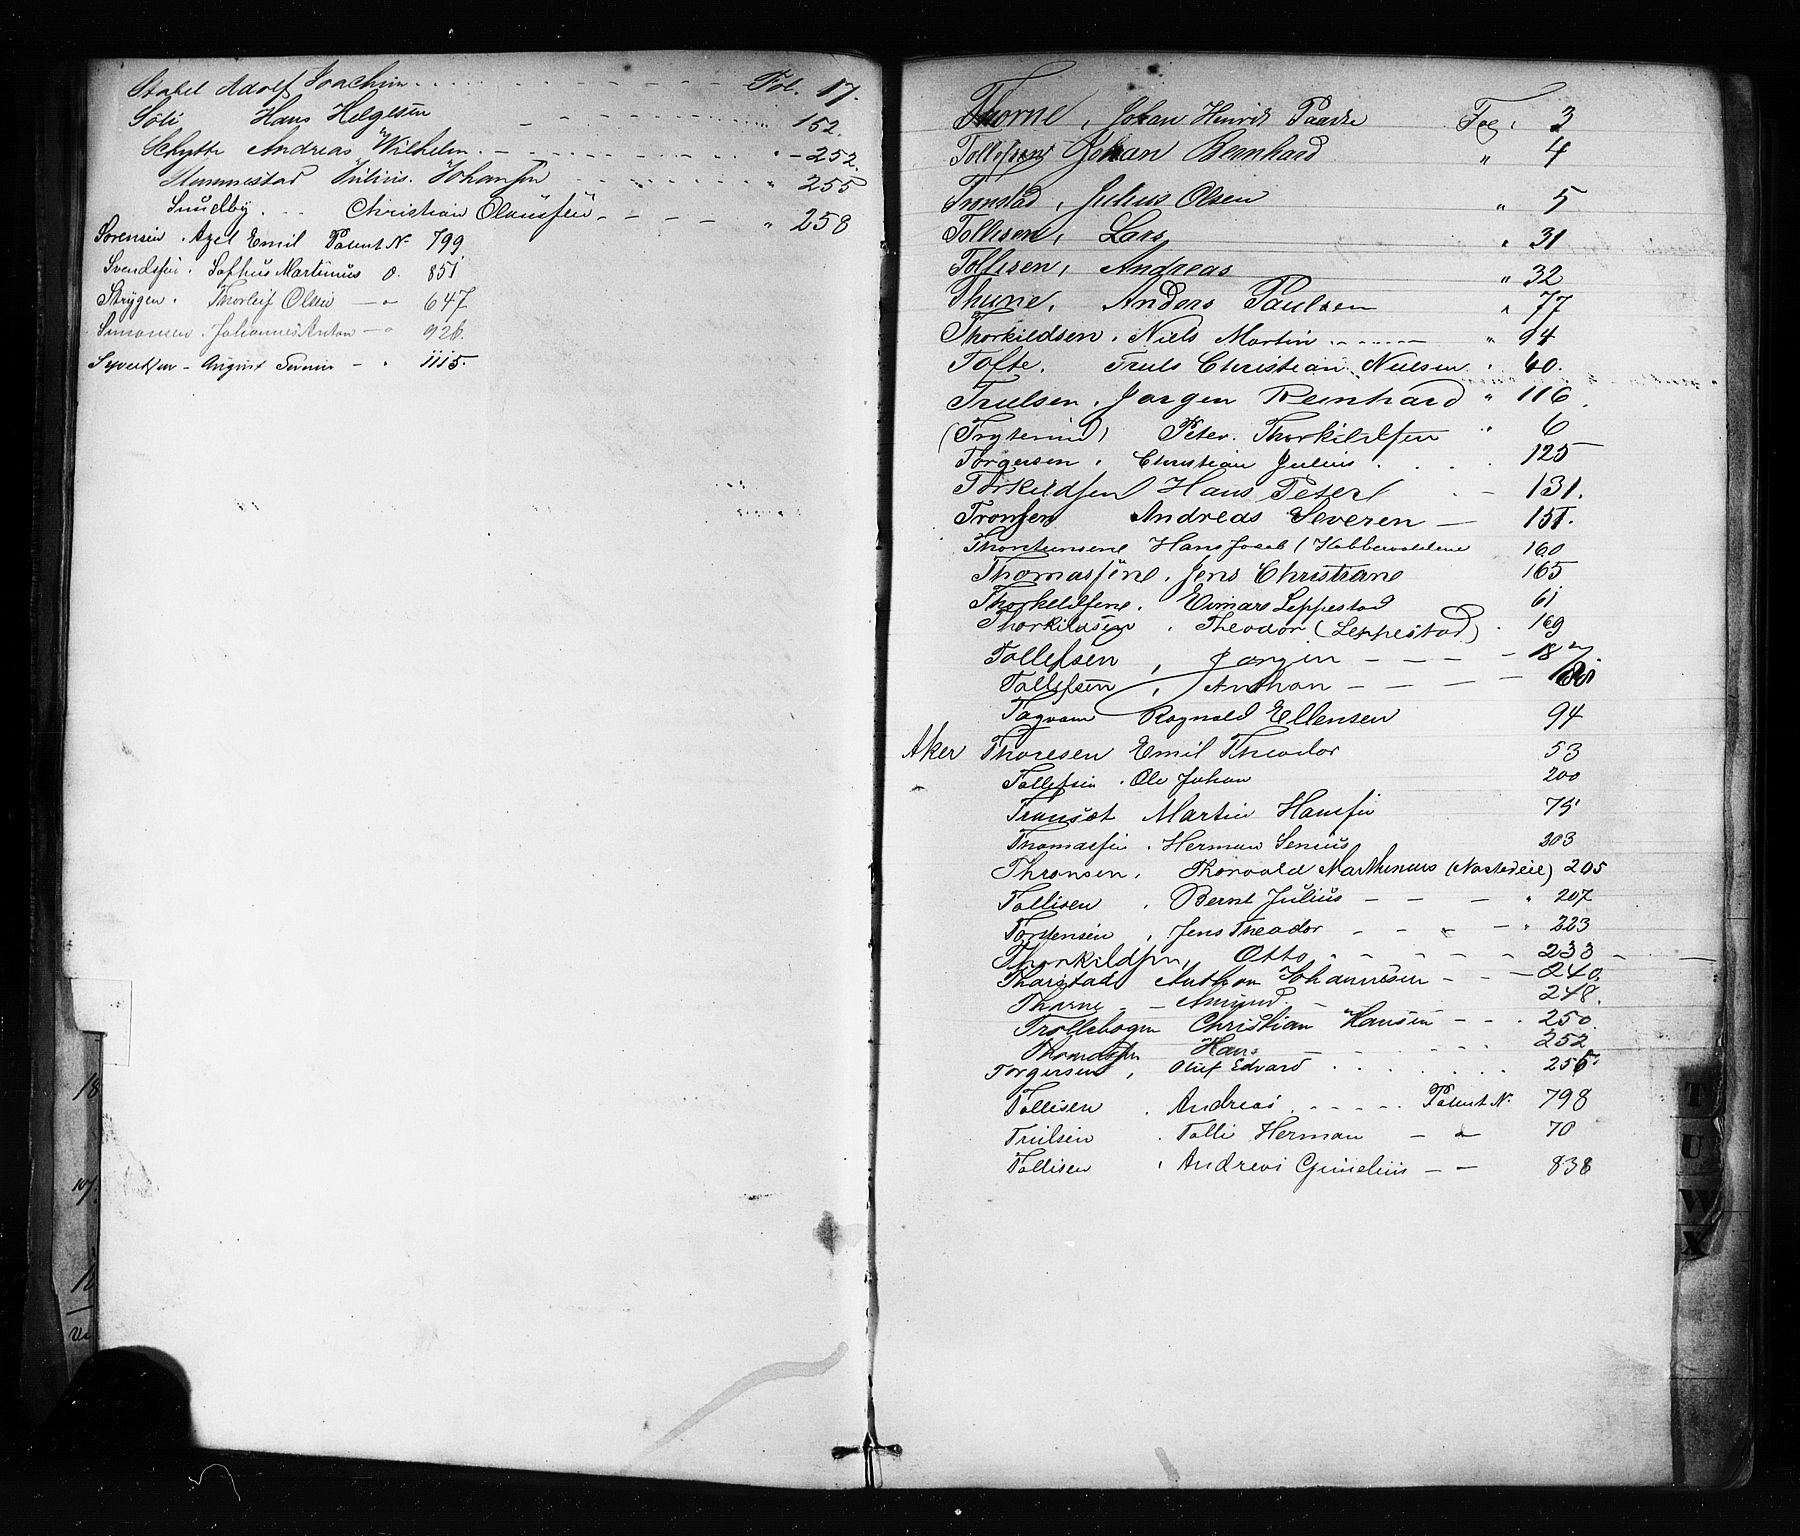 Stabel Adolf Joachim. Fol. 17.
Söli Hans Helgesen 152.
Schytte Andreas Wilhelm. 252.
Stemmestad Julius. Johansen " 255
Sundby. Christian Olaussen " 258
Sörensen. Axel Emil Patent N. 799.
Svendsen. Sofhus Martinius o. 851.
Strygen. Thorleif Olsen 647
Simonsen. Johannes Anton 926.
Syvertsen August 1115.
Thorne, Johan Henrik Paaske Fol. 3
Tollefsen Johan Bernhard " 4
Tronstad, Julius Olsen " 5
Tollisen, Lars " 31
Tollisen, Andreas " 32
Thune, Anders Paulsen " 77
Thorkildsen. Niels Martin " 94
Tofte. Truls Christian Nielsen " 60.
Trulsen, Jørgen Reinhard " 116
Peter. Thorkildsen " 6
Torgersen. Christian Julius 125
Torkildsen Hans Peter 131.
Tronsen Andreas Severen 151.
Hans Jacob 160
Thomassen. Jens Christian 165
Thorkildsen. Leppestad 61
Thorkildsen. Theodor (Leppestad) 169
Tollefsen, Jørgen
Tollefsen, Anthon
Ragnvald Ellensen 94
Aker Thoresen Emil Theodor 53
Tollefsen. Ole Johan 200
Transet Martin Hansen 75
Thomassen. Herman 203
Thronsen. Thorvald Marthinius 205
Tollisen. Bernt Julius " 207
Torstensen, Jens Theodor " 223
Thorkildsen, Otto 233
Anthon Johannesen 240.
Thorne Amund 248.
Trollebogen Christian Hansen 250.
Thomassen Hans 252
Torgersen, Oluf Edvard 256
Tollisen. Andreas Patent N. 798
Trulsen. Tolli Herman 70
Tollisen. Andreas 838
T
U
W
X